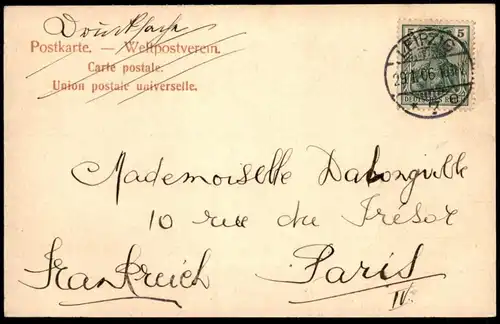 Drucksache
Postkarte. — Weltpostverein.
Carte postale.
Union postale universelle.
5 5
LEIPZIG
Mademoiselle Dalongiville
10 rue du Trésor
Frankreich Paris
IV